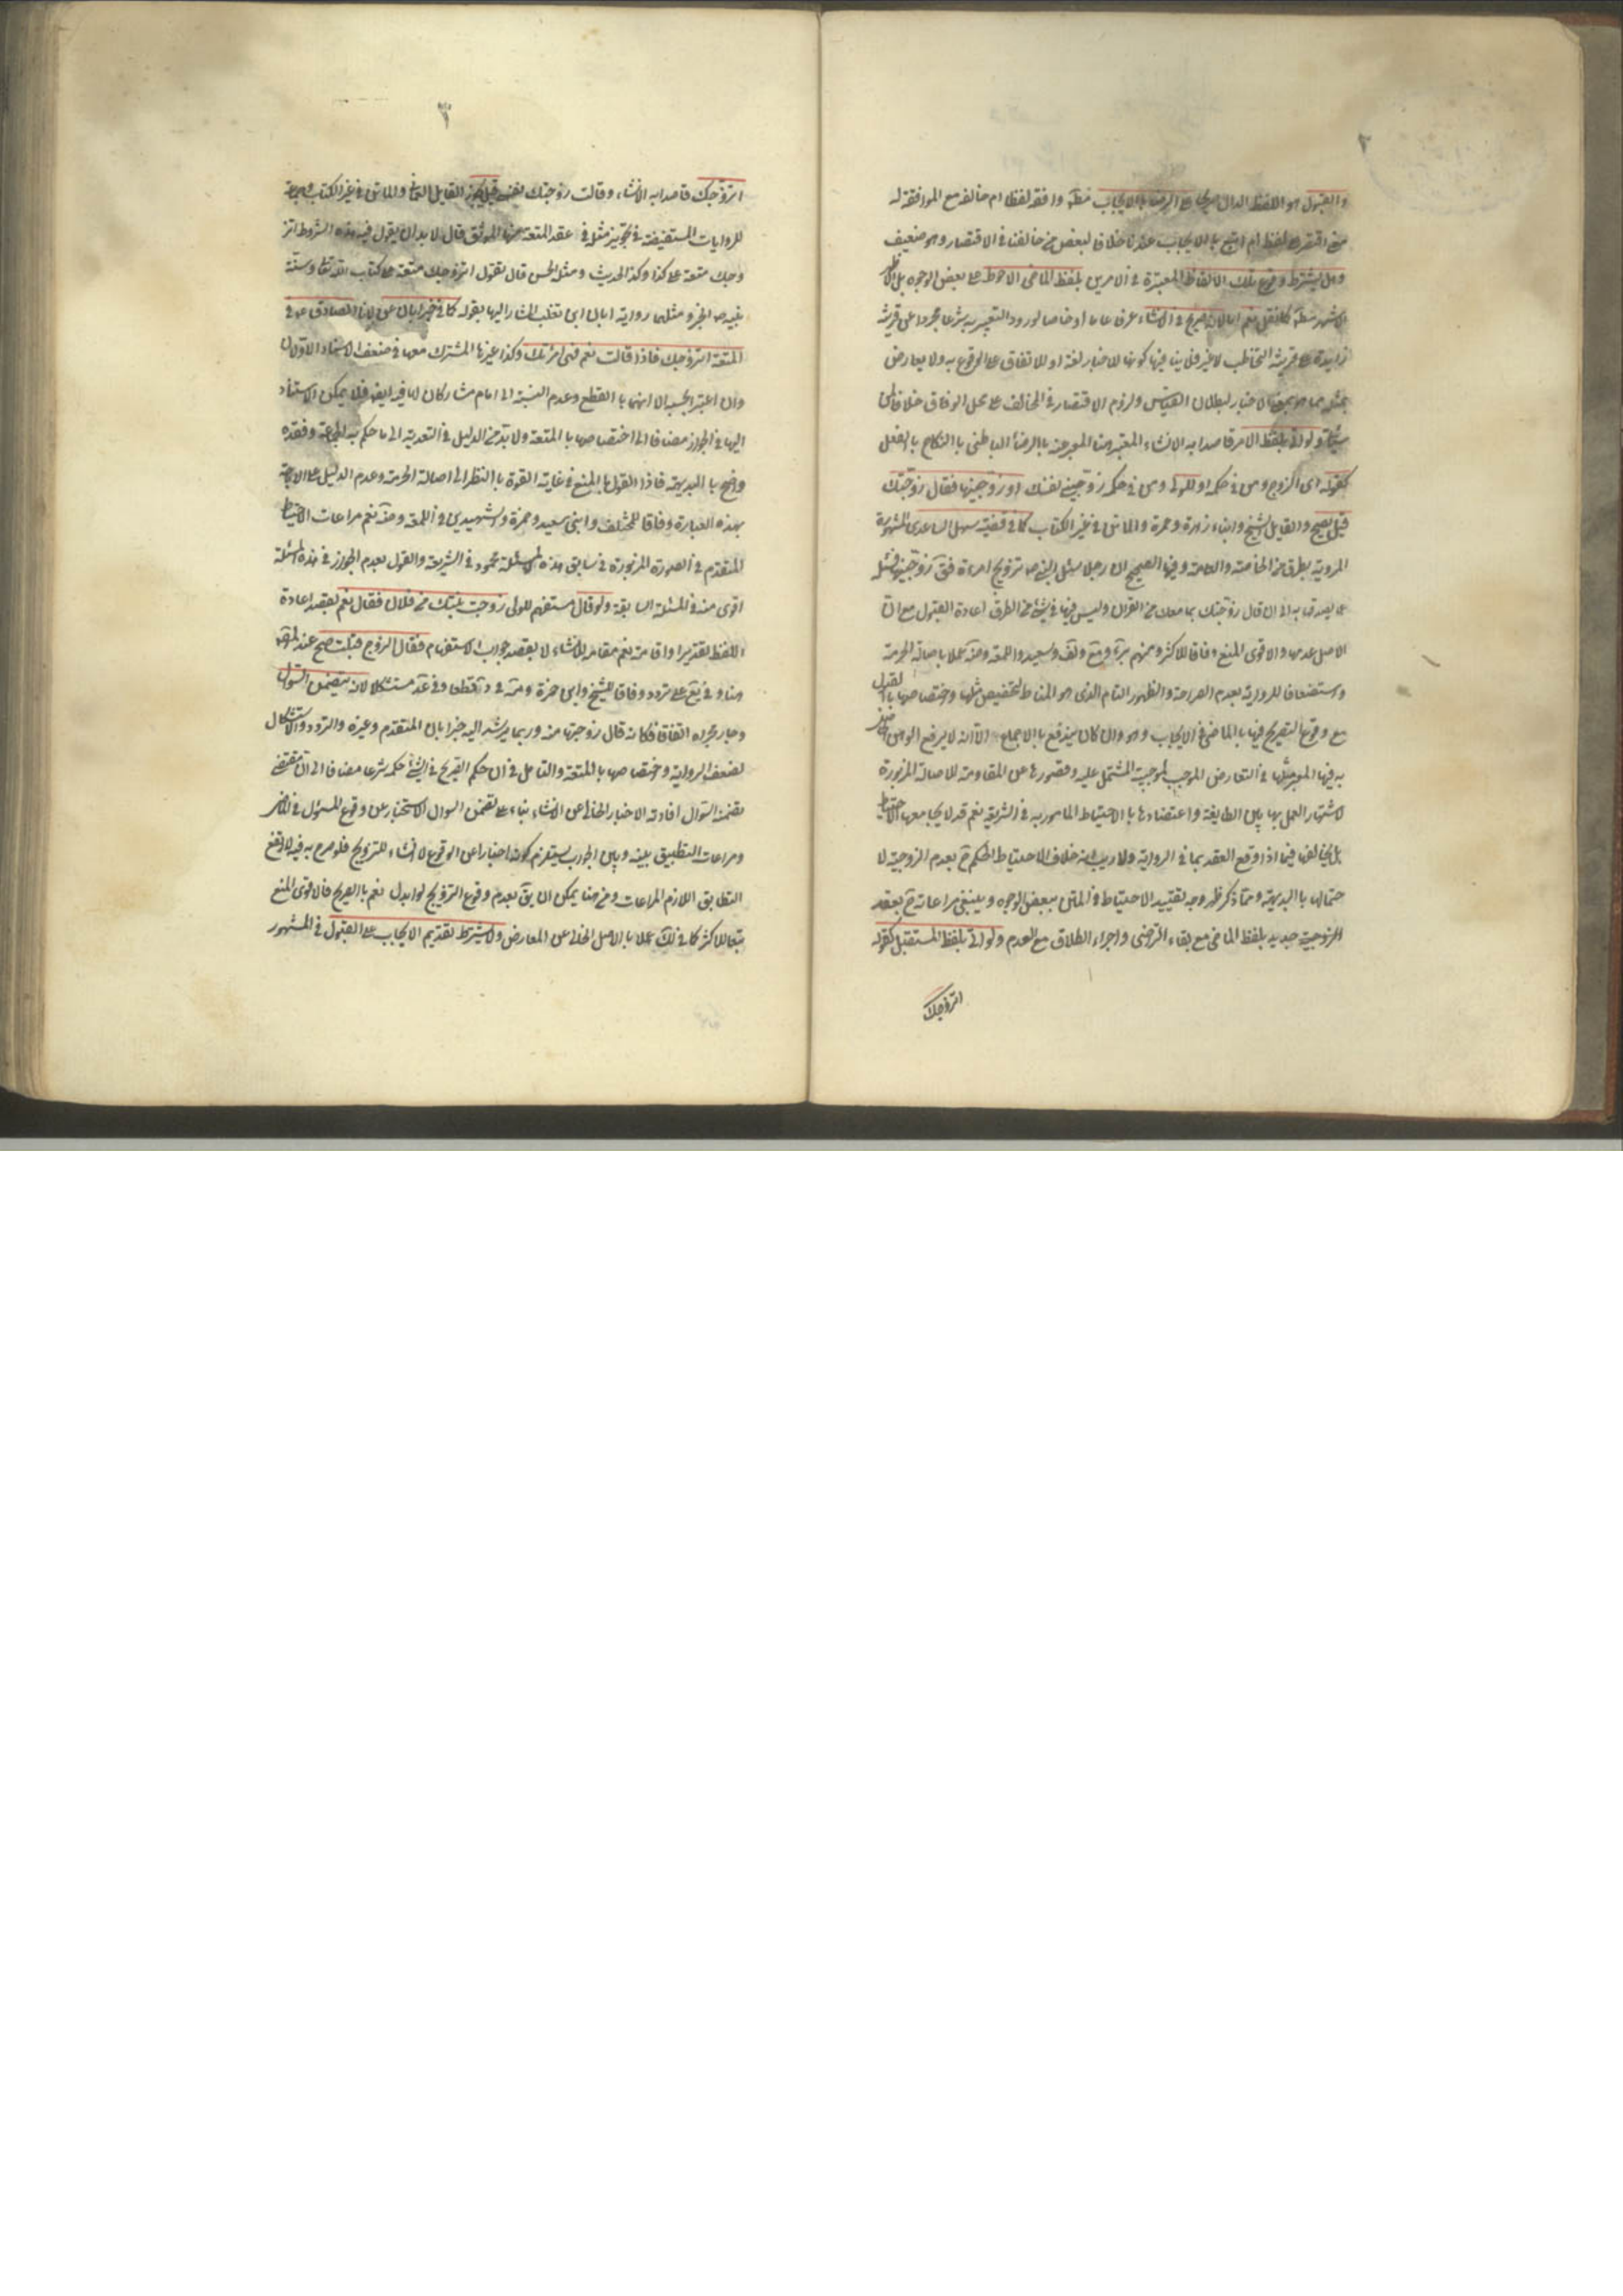 ٢
والقبول هو اللفظ الدال صريحا على الرضا بالايجاب مطلقا وافقه لفظا ام خالفه مع الموافقة له
معنى اقتصر على لفظه ام اتبع بالايجاب عندنا خلافا لبعض من خالفنا في الاقتصار وهو ضعيف
وهل يشترط وقوع تلك الالفاظ المعتبرة في الامرين بلفظ الماضي الاحوط على بعض الوجوه بل الاظهر
الاشهر مطلقا كما نقل نعم اما لانه صريح في الانشاء عرفا عاما او خاصا لورود التعبير به شرعا مجردا عن قرينة
زايدة على قرينة التخاطب لا غير فلا ينافيها كونها للاخبار لغة او للاتفاق على الوقوع به ولا يعارض
بمثله مما هو بمعنى الاخبار لبطلان القياس ولزوم الاقتصار في المخالف على محل الوفاق خلافا لمن
سيأتي ولو اتى بلفظ الامر قاصدا به الانشاء المعتبر هنا المعبر عنه بالرضا الباطني بالنكاح بالفعل
كقوله اى الزوج ومن في حكمه او للولي ومن في حكمه زوجيني نفسك او زوجنيها فقال زوجتك
قيل يصح والقايل الشيخ وابناء زهرة وحمزة والماتن في غير الكتاب كما في قضية سهل الساعدى المشهورة
المروية بطرق من الخاصة والعامة وفيها الصحيح ان رجلا سئل النبي ص تزويج امراة فقال زوجنيها فسئله
ما يصدقها به الى ان قال زوجتك بما معك من القران وليس فيها في شيء من الطرق اعادة القبول مع ان
الاصل عدمها والاقوى المنع وفاقا للاكثر ومنهم
واستضعافا للرواية بعدم الصراحة والظهور التام الذى هو المناط لتخصيص مثلها واختصاصها بالقبول
مع وقوع التصريح فيها بالماضي في الايجاب وهو وان كان يندفع بالاجماع الا انه لا يرفع الوهن
به فيها الموجب لمثلها في التعارض الموجب لمرجوحية المشتمل عليه وقصورها عن المقاومة للاصالة المزبورة
لاشتهار العمل بها بين الطايفة واعتضادها بالاحتياط المامور به في الشريعة نعم قد لا يجامعها الاحتياط
بل يخالفها فيما اذا وقع العقد بما في الرواية ولا ريب انه خلاف الاحتياط الحكم ح بعدم الزوجية لا
حتمالها بالبديهة ومما ذكر ظهر وجه تقييد الاحتياط في المتن ببعض الوجوه وينبغي مراعاته ح بعقد
الزوجية جديد بلفظ الماضي مع بقاء التراضي واجراء الطلاق مع العدم ولو اتى بلفظ المستقبل كقوله
اتزوجك
٣
اتزوجك قاصدا به الانشاء وقالت زوجتك نفسي قيل يجوز القايل العماني والماتن في غير الكتاب وجماعة
للروايات المستفيضة في تجويز مثله في عقد المتعة منها الموثق قال لا بد ان يقول فيه هذه الشروط اتز
وجك متعة على كذا وكذا الحديث ومثله الحسن قال تقول اتزوجك متعة على كتاب الله تعالى وسنة
نبيه ص الخبر ومثلهما رواية ابان ابن تغلب المشار اليها بقوله كما في خبر ابان عن مولانا الصادق ع في
المتعة اتزوجك فاذا قالت نعم فهي امرأتك وكذا غيرها المشترك معها في ضعف الاسناد الاولان
وان اعتبر بحسبه الا انهما بالقطع وعدم النسبة الى امام مشاركان لها فيه ايضا فلا يمكن الاستناد
اليها في الجواز مضافا الى اختصاصها بالمتعة ولا بد من الدليل في التعدية الى ما حكم به الجماعة وفقده
واضح بالبديهة فاذا القول بالمنع في غاية القوة بالنظر الى اصالة الحرمة وعدم الدليل على الاباحة
بهذه العبارة وفاقا للمختلف وابنى سعيد وحمزة والشهيدين في اللمعة وضة نعم مراعات الاحتياط
المتقدم في الصورة المزبورة في سابق هذه المسئلة محمود في الشريعة والقول بعدم الجواز في هذه المسئلة
اقوى منه في المسئلة السابقة ولو قال مستفهم للولى زوجت بنتك من فلان فقال نعم بقصد اعادة
اللفظ تقديرا واقامة نعم مقامه للانشاء لا بقصد جواب الاستفهام فقال الزوج قبلت صح عند المص
هنا وفي يع على تردد وفاقا للشيخ وابن حمزة لانه يتضمن السؤال
وجار مجراه اتفاقا فكانه قال زوجتها منه وربما يرشد اليه خبر ابان المتقدم وغيره والتردد والاشكال
لضعف الرواية واختصاصها بالمتعة والتامل في ان حكم الصريح في الشيء حكمه شرعا مضافا الى ان مقتضى
تضمنه السؤال افادته الاخبار الخالي عن الانشاء بناء على تضمن السؤال الاستخبار عن وقوع المسؤل في الخارج
ومراعات التطبيق بينه وبين الجواب يستلزم كونه اخبارا عن الوقوع لا انشاء للتزويج فلو صرح به فيه لارتفع
التطابق اللازم المراعات ومن هنا يمكن ان يقال بعدم وقوع التزويج لو ابدل نعم بالصريح فالاقوى المنع
تبعا للاكثر كما في لك عملا بالاصل الخالي عن المعارض ولا يشترط تقديم الايجاب على القبول في المشهور